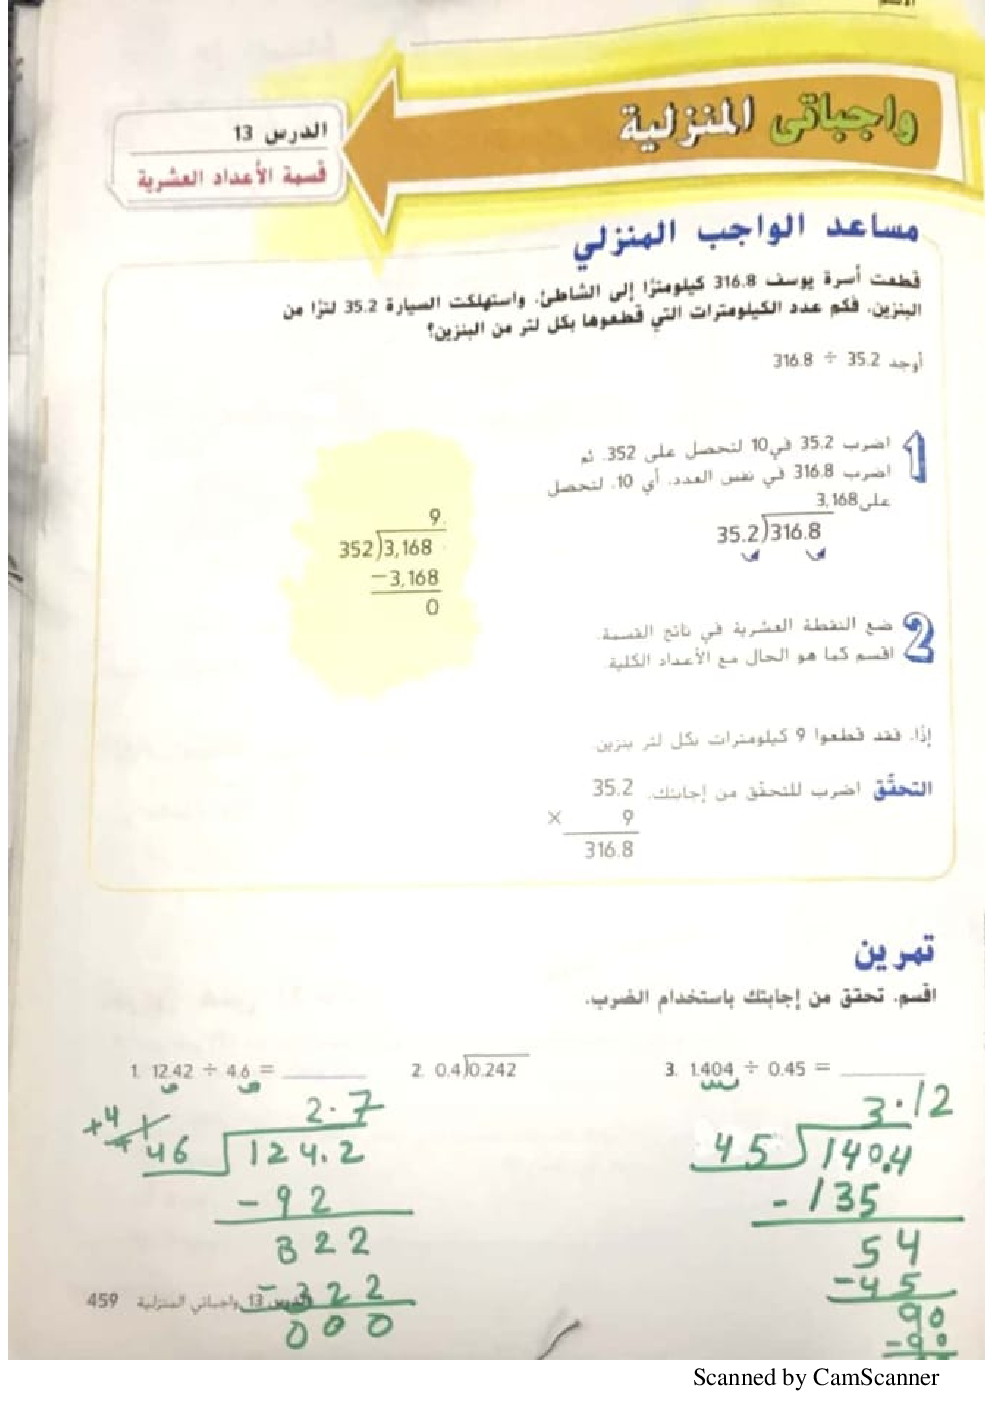 الاسم
واجباتي المنزلية
الدرس 13
قسمة الأعداد العشرية
مساعد الواجب المنزلي
قطعت أسرة يوسف 316.8 كيلومترًا إلى الشاطئ. واستهلكت السيارة 35.2 لترًا من
البنزين. فكم عدد الكيلومترات التي قطعوها بكل لتر من البنزين؟
أوجد 35.2 ÷ 316.8
1 اضرب 35.2 في 10 لتحصل على 352. ثم
اضرب 316.8 في نفس العدد، أي 10، لتحصل
على 3,168
35.2)316.8
9.
352)3,168
−3,168
0
2 ضع النقطة العشرية في ناتج القسمة.
اقسم كما هو الحال مع الأعداد الكلية.
إذًا، فقد قطعوا 9 كيلومترات بكل لتر بنزين.
التحقّق اضرب للتحقق من إجابتك.
35.2
× 9
316.8
تمرين
اقسم. تحقق من إجابتك باستخدام الضرب.
1. 12.42 ÷ 4.6 = ______
2. 0.4)0.242
3. 1.404 ÷ 0.45 = ______
2.7
+4
46 124.2
- 92
322
- 322
000
3.12
45 140.4
- 135
54
- 45
90
- 90
459 الدرس 13 واجباتي المنزلية
Scanned by CamScanner